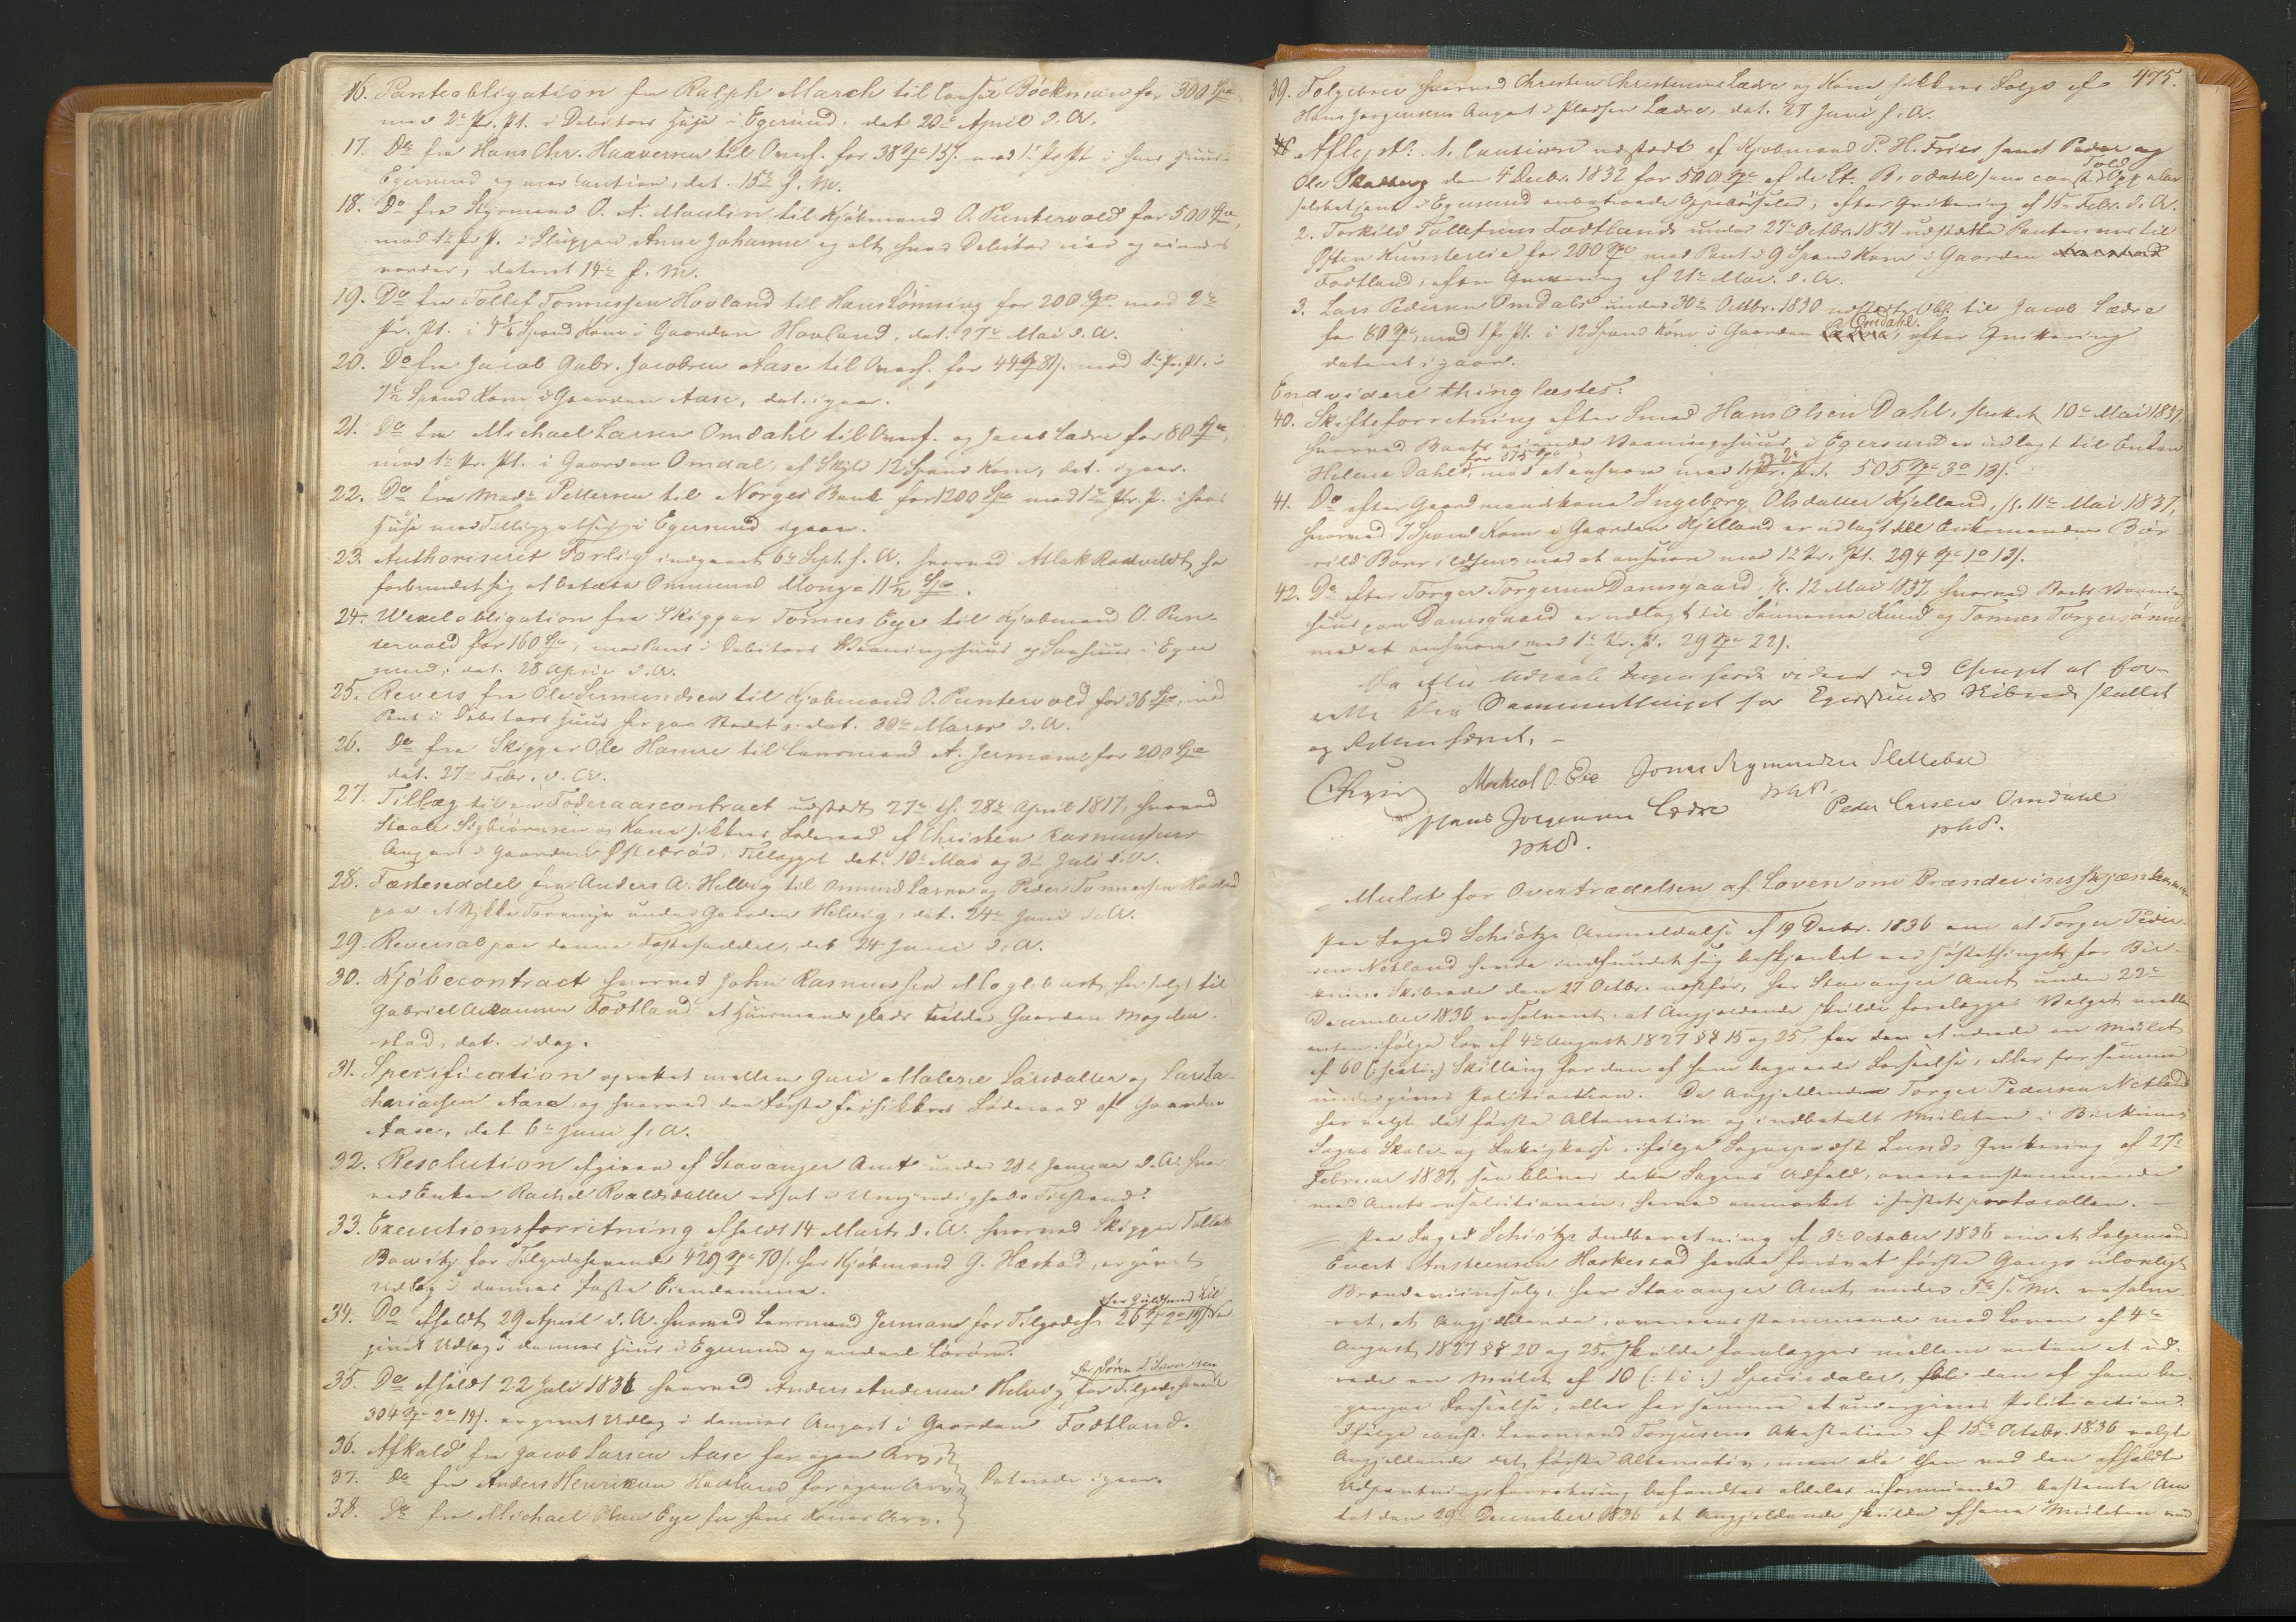 16. Panteobligation fra Ralph March til Consul Böckman for 300 Spd.
med 2d Pr. Pt. i Debitors Huus i Egersund, dat. 20de April d. A.
17. Do fra Hans Chr. Haaversen til Overf. for 38 Spd 15 s. med 1. Pr Pt i hans Huus i
Egersund og med Caution, dat. 15de f. M.
18. Do fra Styrmand O. A. Maulin til Kjöbmand O. Puntervold for 500 Spd,
med 1ste Pr. P. i Sluppen Anne Johanne og alt hvad Debitor eier og eiendes
vorder, dateret 14de f. M.
19. Do fra Tollef Tonnessen Hovland til Hans Lönning for 200 Spd med 2de
Pr. Pt. i Spand Korn i Gaarden Hovland, dat. 27de Mai d. A.
20. Do fra Jacob Gabr. Jacobsen Aase til Overf. for 44 Spd 81 s. med 1ste Pr. Pt. i
Spand Korn i Gaarden Aase, dat. igaar.
21. Do fra Michael Larsen Omdahl til Overf. og Jacob Lædre for 80 Spd,
med 1ste Pr. Pt. i Gaarden Omdal, af Skyld 12 Spand Korn, dat. igaar.
22. Do fra Mads Pettersen til Norges Bank for 1200 Spd med 1ste Pr. P. i hans
Huus med Tilliggelser i Egersund igaar.
23. Authoriseret Forlig indgaaet 6te Sept. f. A. hvorved Atlak Rodvelt har
forbundet sig at betale Ommund Monge 11 1/2 Spd.
24. Wexelobligation fra Skipper Tonnes Eye til Kjöbmand O. Pun-
tervold for 160 Spd, med Pant i Debitors Vaaningshuus og Søehuus i Eger
sund, dat. 28 April d. A.
25. Revers fra Ole Simundsen til Kjöbmand O. Puntervold for 36 Spd, med
Pant i Debitors Huus her paa Stedet, dat. 30te Marts d. A.
26. Do fra Skipper Ole Hansen til Lensmand A. Jermann for 200 Spd
dat. 27de Febr. d. A.
27. Tillæg til en Föderaadscontract udstedt 27de th. 28de April 1817, hvorved
Staale Sigbiörnsen og Kone sikkres Föderaad af Christen Rasmussens
Anpart i Gaarden Östebröd, Tillægget dat. 10de Mai og 3die Juli d. A.
28. Fæsteseddel fra Anders A. Helvig til Osmund Larsen og Peder Tonnessen
paa et Stykke Torvmyr under Gaarden Helvig, dat. 24de Juni d. A.
29. Reversal paa denne Fæsteseddel, dat. 24 Juni d. A.
30. Kjöbecontract hvorved John Rasmussen Mogleburst har solgt til
Gabriel Aasmunsen Fodtland et Huusmandsplads under Gaarden Mogle-
-stad, dat. idag.
31. Specification oprettet mellem Guri Malene Larsdatter og Lars Za-
chariasen Aase, og hvorved den første forsikkres Föderaad af Gaarden
Aase, dat. 6te Juni f. A.
32. Resolution afgiven af Stavanger Amt under 28de Januar d. A. hvor
ved Enken Rachel Roaldsdatter er sat i Umyndigheds Tilstand.
33. Executionsforretning afholdt 14 Marts d. A. hvorved Skipper Tollak
Bowitz for Tilgodehavende 429 Spd 70 s. hos Kjöbmand G. Hæstad, er givet
Udlæg i dennes faste Eiendomme.
34. Do afholdt 29 April d. A. hvorved Lensmand Jermann for Tilgodeh. 26 Spd er
givet Udlæg i dennes Huus i Egersund og andet Lösöre.
35. Do afholdt 22 Juli 1836 hvorved Anders Andersen Helvig for Tilgodehavende
hos Sören T. Sivertsen
304 Spd 2 19 s. er givet Udlæg i dennes Anpart i Gaarden Fodtland.
36. Afkald fra Jacob Larsen Aase for egen Arv,
37. Do fra Anders Henriksen Hovland for egen Arv, Daterede igaar.
38. Do fra Michael Olsen Eye for hans Kones Arv.
475.
39. Følgebrev hvorved Christen Christensen Lædre og Kone sikkres Følge af
Hans Jørgensens Anpart i Pladsen Lædre, dat. 27 Juni f. A.
Aflyst: 1. Cautionen udstedt af Kjøbmand P. H. Fries samt Peder og
Ole Skadberg den 4 Decbr. 1832 for 500 Spd
i Egersund anbetroede Oppebørseler, efter Qvittering af 15de Febr. d. A.
2. Torkild Tollefsens Fodtlands under 27de Octbr. 1831 udstedte Pantebrev til
Osten for 200 Spd med Pant i 9 Spand Korn i Gaarden
Fodtland, efter Qvittering af 21de Mai d. A.
3. Lars Pedersen Omdals under 30te Octbr. 1830 udstedte Obl. til Jacob Lædre
for 80 Spd, med 1 Pr Pt. i 12 Spand Korn i Gaarden Omdahl, efter Qvittering
dateret igaar.
Endvidere thinglæstes:
40. Skifteforretning efter Smed Hans Olsen Dahl, sluttet 10de Mai 1837,
hvorved Boets eiende Vaaningshuus i Egersund er udlagt til Enken
Helene Dahl for 575 Spd, mod at ansvare med 1 og 2 Pr. Pt. 505 Spd 3 13 s.
41. Do efter Gaardmandskone Ingeborg Olsdatter Kjelland, sl. 11te Mai 1837,
hvorved 7 Spand Korn i Gaarden Kjelland er udlagt til Enkemanden Bo-
rild Borrildsen mod at ansvare med 1ste Pr. Pt. 294 Spd 1 13 s.
42. Do efter Torger Torgersen Damsgaard, sl. 12 Mai 1837, hvorved Boets Vaanings
huus paa Damsgaard er udlagt til Sønnerne Knud og Tonnes Torgersønner
mod at ansvare med 1ste Pr. Pt. 29 Spd 22 s.
Da efter Udraab Ingen havde videre ved Thinget at fore-
rette blev Sommerthinget for Egersunds Skibrede sluttet
og Retten hævet. –
Michael O. Eie Jonas Sigmundsen Slettebøe
mhP.
Hans Jorgensen Lædre Peder Larsen Omdahl
mhP. mhP.
– Mulct for Overtrædelsen af Loven om Brændeviinsskjænken
Paa Foged Schiøtz's Anmeldelse af 19 Decbr. 1836 om at Torger Peder-
sen Netland havde indfundet sig beskjænket ved Høstethinget for Bir-
krims Skibrede den 27 Octbr. næstfør, har Stavanger Amt under 22de
December 1836 resolveret, at Angjeldende skulde forelægges Valget mellem
enten ifølge Lov af 4de August 1827 §§ 15 og 25, at udrede en Mulct
af 60 (: sexti:) Skilling for den af ham begaaede Forseelse, eller for samme
undergives Politiaction. Da Angjeldende Torger Pedersen Netland
har valgt det første Alternativ og indbetalt Mulcten i Birkrims
Sogns Skole- og Fattigkasse, ifølge Sognepræst Lunds Qvittering af 27de
Februar 1837, saa bliver dette Sagens Udfald, overeensstemmende
med Amtsresolutionen, herved anmærket i Justitsprotocollen. –
Paa Foged Schiøtz Indberetning af 3die October 1836 om at Følgemand
Evert Ansteensen Haskestad havde forøvet første Gangs ulovligt
Brændeviinssalg, har Stavanger Amt under 7de s. M. resolve-
ret, at Angjeldende, overeensstemmende med Loven af 4de
August 1827 §§ 20 og 25, skulde forelægges mellem enten at ud-
rede en Mulct af 10 (: ti :) Speciedaler, for den af ham be-
gangne Forseelse, eller for samme at undergives Politiaction.
Ifølge const. Lensmand Torjusens Attestation af 15de Octobr. 1836 valgte
Angjeldende det første Alternativ, men da han ved den afholdte
Udpantningsforretning befandtes aldeles uformuende, bestemte Am
tet den 29de December 1836 at Angjeldende skulde afsone Mulcten med